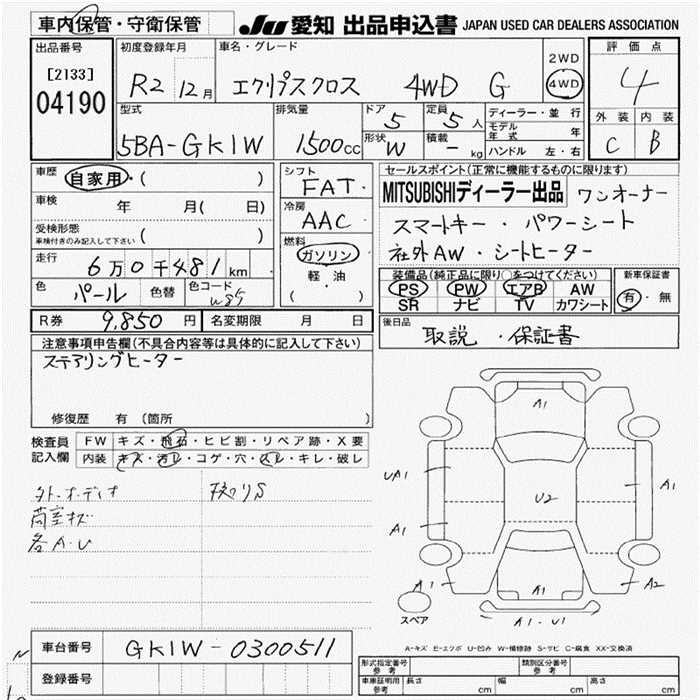 車内保管・守衛保管
JU 愛知 出品申込書 JAPAN USED CAR DEALERS ASSOCIATION
出品番号
[2133]
04190
初度登録年月
R2 12月
車名・グレード
エクリプスクロス 4WD G
2WD
4WD
評価点
4
外装 内装
C B
型式
5BA-GK1W
排気量
1500cc
ドア
5
定員
5人
形状
W
積載
- kg
ディーラー・並行
モデル年式 年
ハンドル 左・右
車歴
自家用・( )
車検
年 月( 日)
受検形態
車検付きのみ記入して下さい ( )
走行
6万0千481km
色
パール
色替
色コード
W85
シフト
FAT
冷房
AAC
燃料
ガソリン
軽・油
( )
セールスポイント(正常に機能するものに限ります)
MITSUBISHIディーラー出品 ワンオーナー
スマートキー・パワーシート
社外AW・シートヒーター
装備品(純正品に限り○をつけてください)
PS PW エアB AW
SR ナビ TV カワシート
新車保証書
有・無
R券 9,850円 名変期限 月 日
後日品
取説・保証書
注意事項申告欄(不具合内容等は具体的に記入して下さい)
ステアリングヒーター
修復歴 有 (箇所 )
検査員
記入欄
FW キズ・飛石・ヒビ割・リペア跡・X要
内装 キズ・汚レ・コゲ・穴・スレ・キレ・破レ
外.オーディオ
荷室キズ
各A.U
A1
UA1
A1
U2
A1
A1
A1
A2
A1・U1
スペア
A-キズ E-エクボ U-凹み W-補修跡 S-サビ C-腐食 XX-交換済
車台番号 GK1W-0300511
登録番号
形式指定番号 参考
類別区分番号 参考
車庫証明用 参考 長さ cm 幅 cm 高さ cm